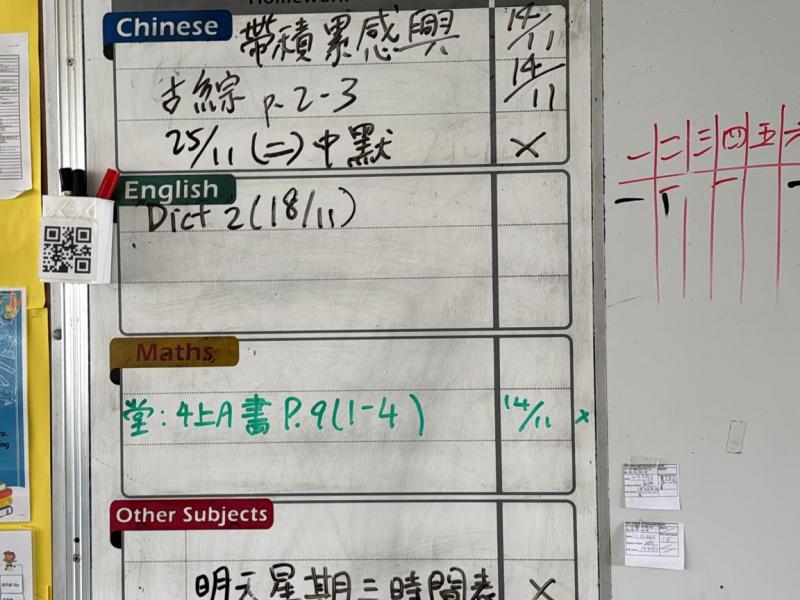 Homework
Chinese
帶積累感興 14/11
古綜 p. 2-3 14/11
25/11 (二) 中默 ×
English
Dict 2 (18/11)
Maths
堂: 4上A 書 P. 9 (1-4) 14/11 ×
Other Subjects
明天星期三時間表 ×
一 二 三 四 五 六